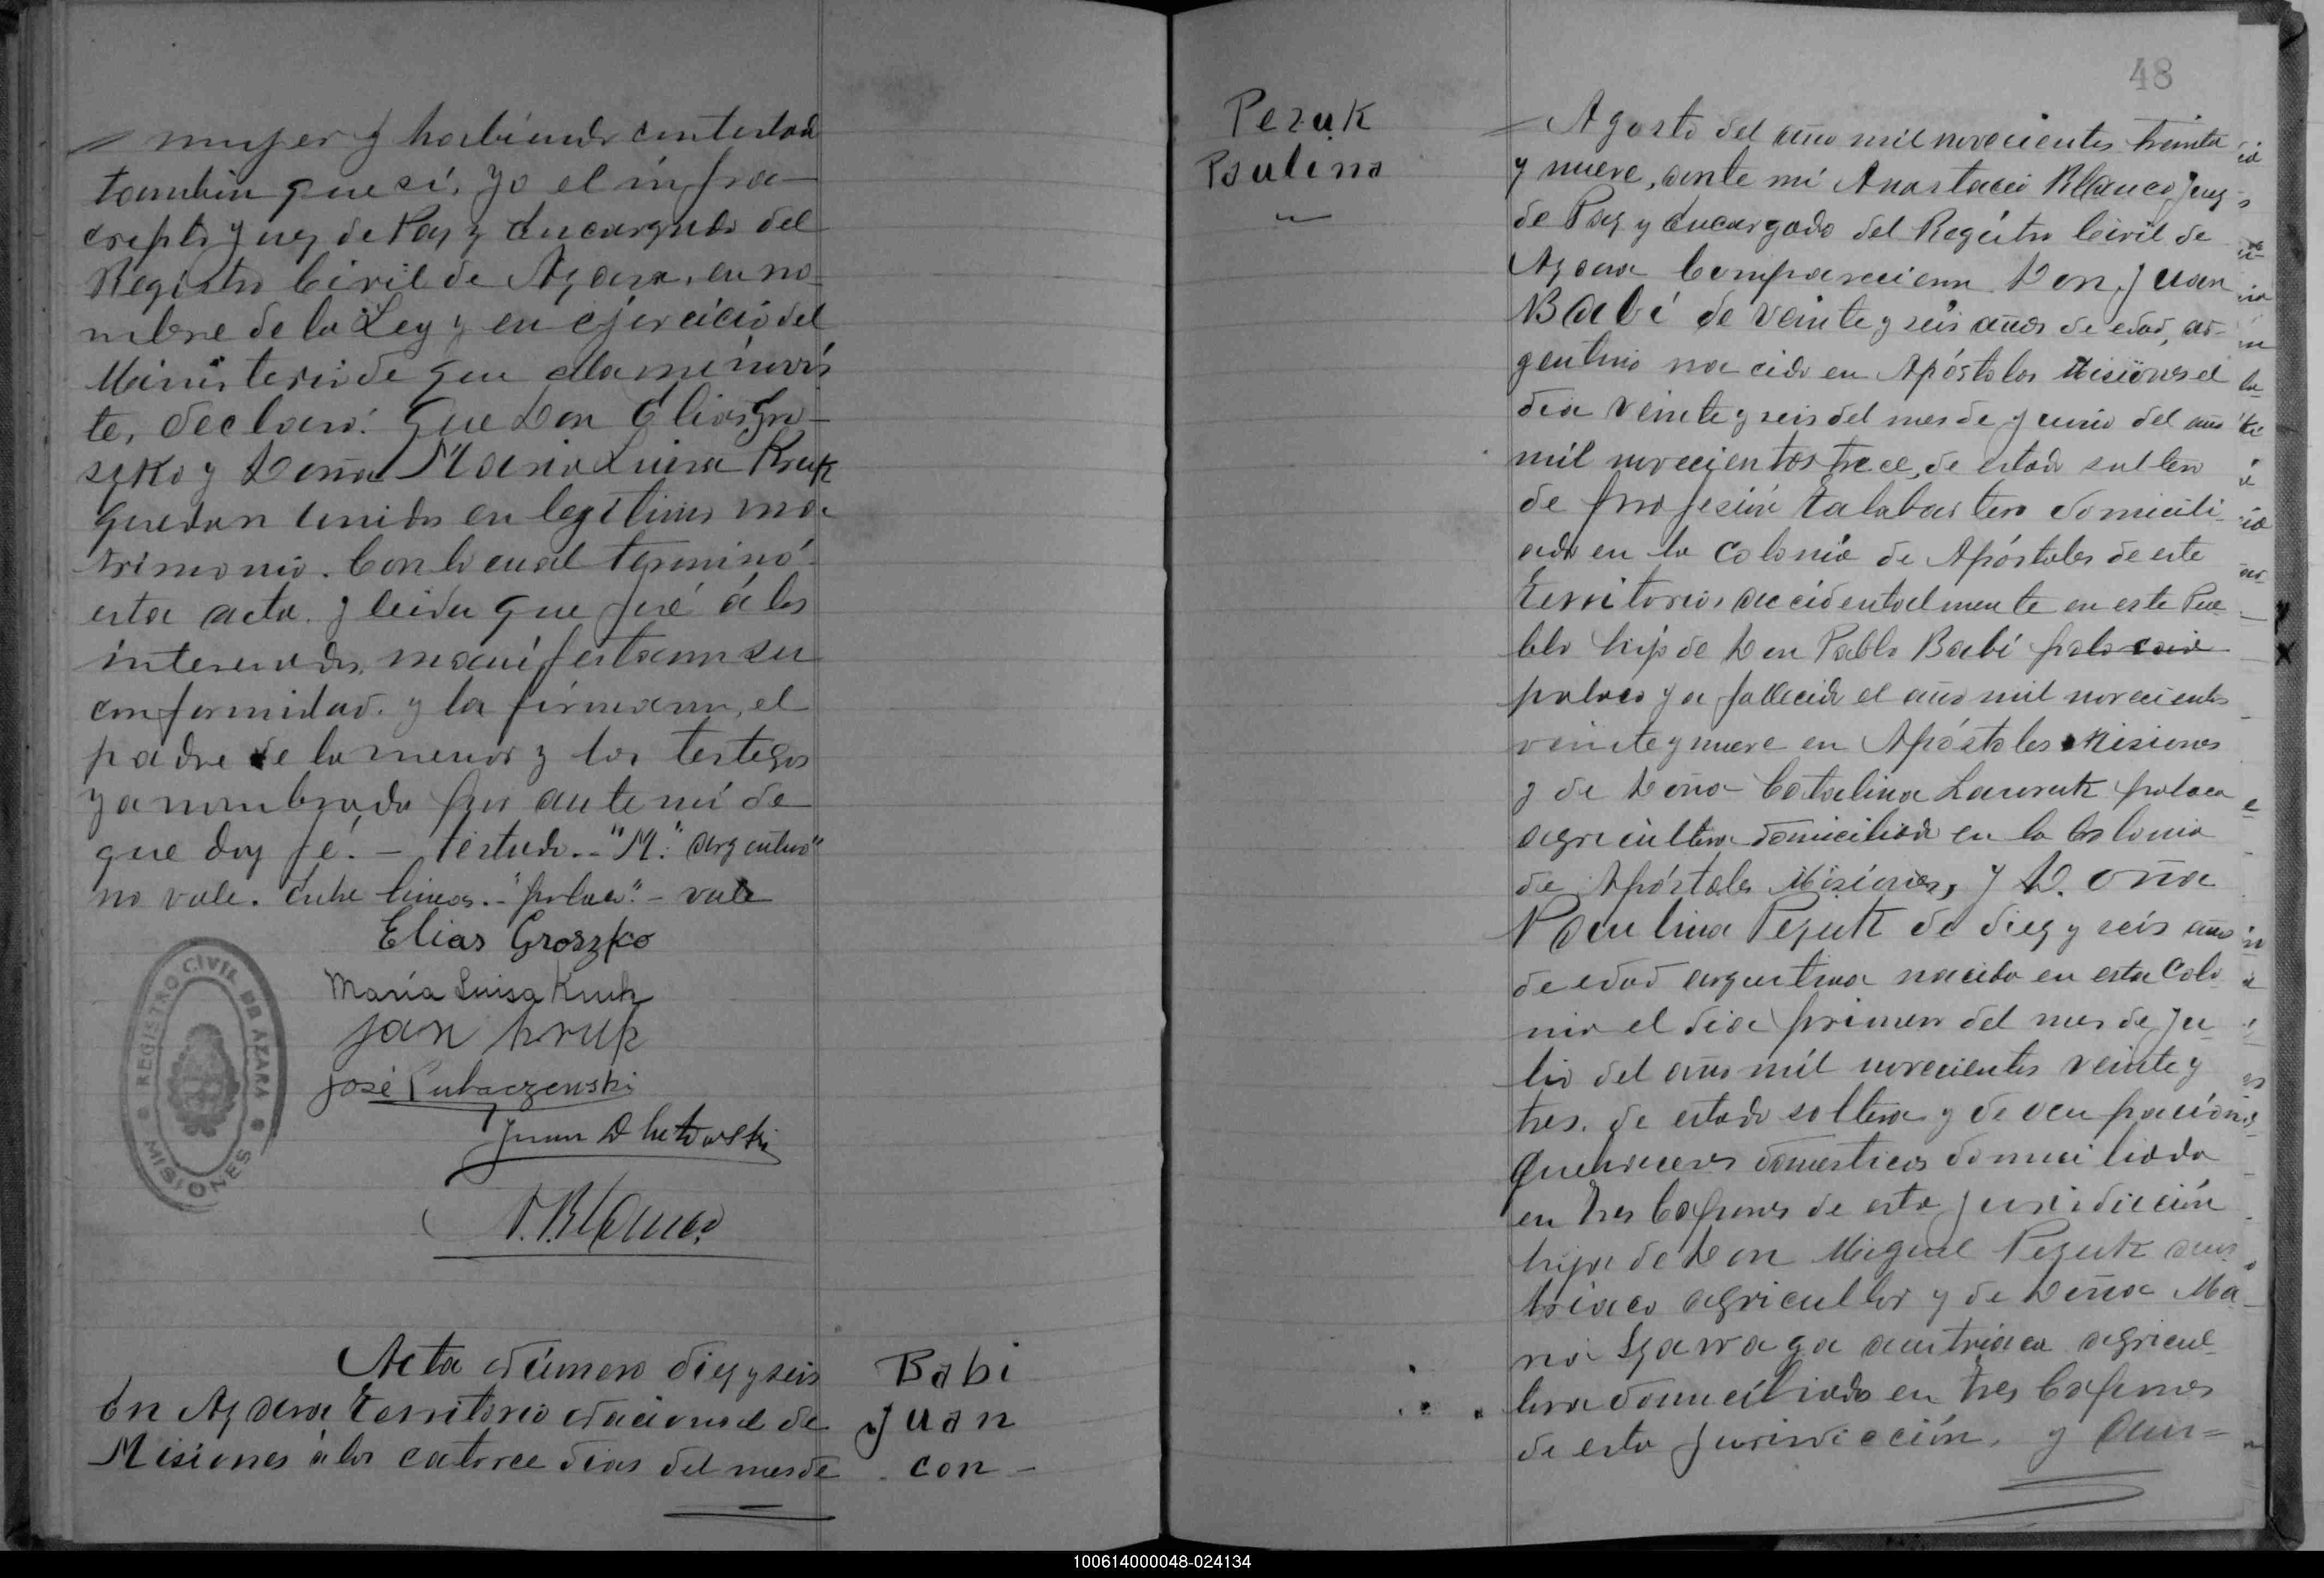 mujer y habiendo contestado
tambien que sí, Yo el infra-
cripto Juez de Paz y Encargado del
Registro Civil de Azara, en no-
mbre de la Ley y en ejercicio del
Ministerio de que ella me invis-
te, declaro: Que Don Elias Gro-
szko y Doña Maria Luisa Kruk
quedan unidos en legitimo ma-
trimonio. Con lo cual terminó
esta acta y leida que fué á los
interesados, manifestaron su
conformidad y la firmaron, el
padre de la menor y los testigos
ya nombrado por ante mí de
que doy fé. - testado.- "M." "argentino"
no vale. Entre lineas.- "polaco".- vale
Elias Groszko
María Luisa Kruk
Jan Kruk
José
Juan
A. Blanco
REGISTRO CIVIL DE AZARA
MISIONES
Acta número diez y seis
En Azara Territorio Nacional de
Misiones á los catorce dias del mes de
Babi
Juan
con -
48
Pezuk
Paulina
Agosto del año mil novecientos treinta
y nueve, ante mí Anastacio Blanco Juez
de Paz y Encargado del Registro Civil de
Azara Comparecieron Don Juan
Babi de veinte y seis años de edad, ar-
gentino nacido en Apóstoles Misiones el
dia veinte y seis del mes de Junio del año
mil novecientos trece, de estado soltero
de profesión talabartero domicili-
ado en la Colonia de Apóstoles de este
Territorio, accidentalmente en este Pue-
blo hijo de Don Pablo Babi
polaco ya fallecido el año mil novecientos
veinte y nueve en Apóstoles Misiones
y de Doña Catalina Lawruk polaca
agricultora domiciliada en la Colonia
de Apóstoles Misiones, y Doña
Paulina Pezuk de diez y seis años
de edad argentina nacida en esta Colo
nia el dia primero del mes de Ju-
lio del año mil novecientos veinte y
tres, de estado soltera y de ocupación
quehaceres domesticos domiciliada
en tres Capones de esta jurisdicción
hija de Don Miguel Pezuk aus
triaco agricultor y de Doña Ma-
ria Szawaga austriaca agricul-
tora domiciliados en tres Capones
de esta jurisdicción, y Aun=
100614000048-024134